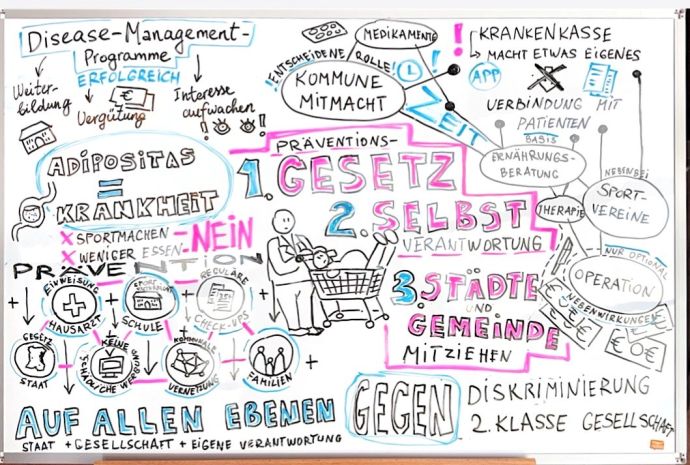 Disease-Management-
Programme
ERFOLGREICH
Weiter-
bildung
Vergütung
€
Interesse
aufwachen
!!
ADIPOSITAS
=
KRANKHEIT
X SPORTMACHEN
X WENIGER ESSEN
– NEIN
!ENTSCHEIDENE ROLLE!
MEDIKAMENTE
KOMMUNE
MITMACHT
ZEIT
! KRANKENKASSE
→ MACHT ETWAS EIGENES
APP
VERBINDUNG MIT
PATIENTEN
BASIS
ERNÄHRUNGS-
BERATUNG
THERAPIE
NEBENBEI
SPORT-
VEREINE
NUR OPTIONAL
OPERATION
NEBENWIRKUNGEN
€
PRÄVENTIONS-
1. GESETZ
2. SELBST
VERANTWORTUNG
3. STÄDTE
UND
GEMEINDE
MITZIEHEN
PRÄVENTION
EINWEISUNG
HAUSARZT
SCHULE
REGULÄRE
CHECK-UPS
GESETZ
STAAT
KEINE
SCHÄDLICHE WERBUNG
KOMMUNALE
VERNETZUNG
FAMILIEN
AUF ALLEN EBENEN
STAAT + GESELLSCHAFT + EIGENE VERANTWORTUNG
GEGEN
DISKRIMINIERUNG
2. KLASSE GESELLSCHAFT